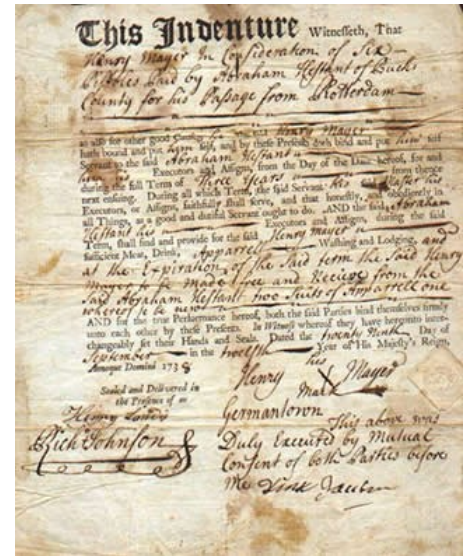 This Indenture Witnesseth, That
Henry Mayer In Consideration of Six
Pistoles Paid by Abraham Hestant of Bucks
County for his Passage from Rotterdam
as also for other good Causes, he the said Henry Mayer
hath bound and put him self, and by these Presents doth bind and put him self
Servant to the said Abraham Hestant
Executors and Assigns, from the Day of the Date hereof, for and
during the full Term of Three Years from thence
next ensuing. During all which Term, the said Servant his said Master his
Executors, or Assigns, faithfully shall serve, and that honestly, and obediently in
all Things, as a good and dutiful Servant ought to do. AND the said Abraham
Hestant his Executors and Assigns, during the said
Term, shall find and provide for the said Henry Mayer
sufficient Meat, Drink, Apparrell Washing and Lodging, and
at the Expiration of the Said term the Said Henry
Mayer to be made free and Recieve from the
Said Abraham Hestant two Suits of Apparrell one
whereof to be new
AND for the true Performance hereof, both the said Parties bind themselves firmly
unto each other by these Presents. In Witness whereof they have hereunto inter-
changeably set their Hands and Seals. Dated the twenty Ninth Day of
September in the twelfth Year of His Majesty's Reign,
Annoque Domini 1738
his
Henry X Mayer
Mark
Sealed and Delivered in
the Presence of us
Rich Johnson
Germantown
This above was
Duly Executed by Mutual
Consent of both Parties before
me